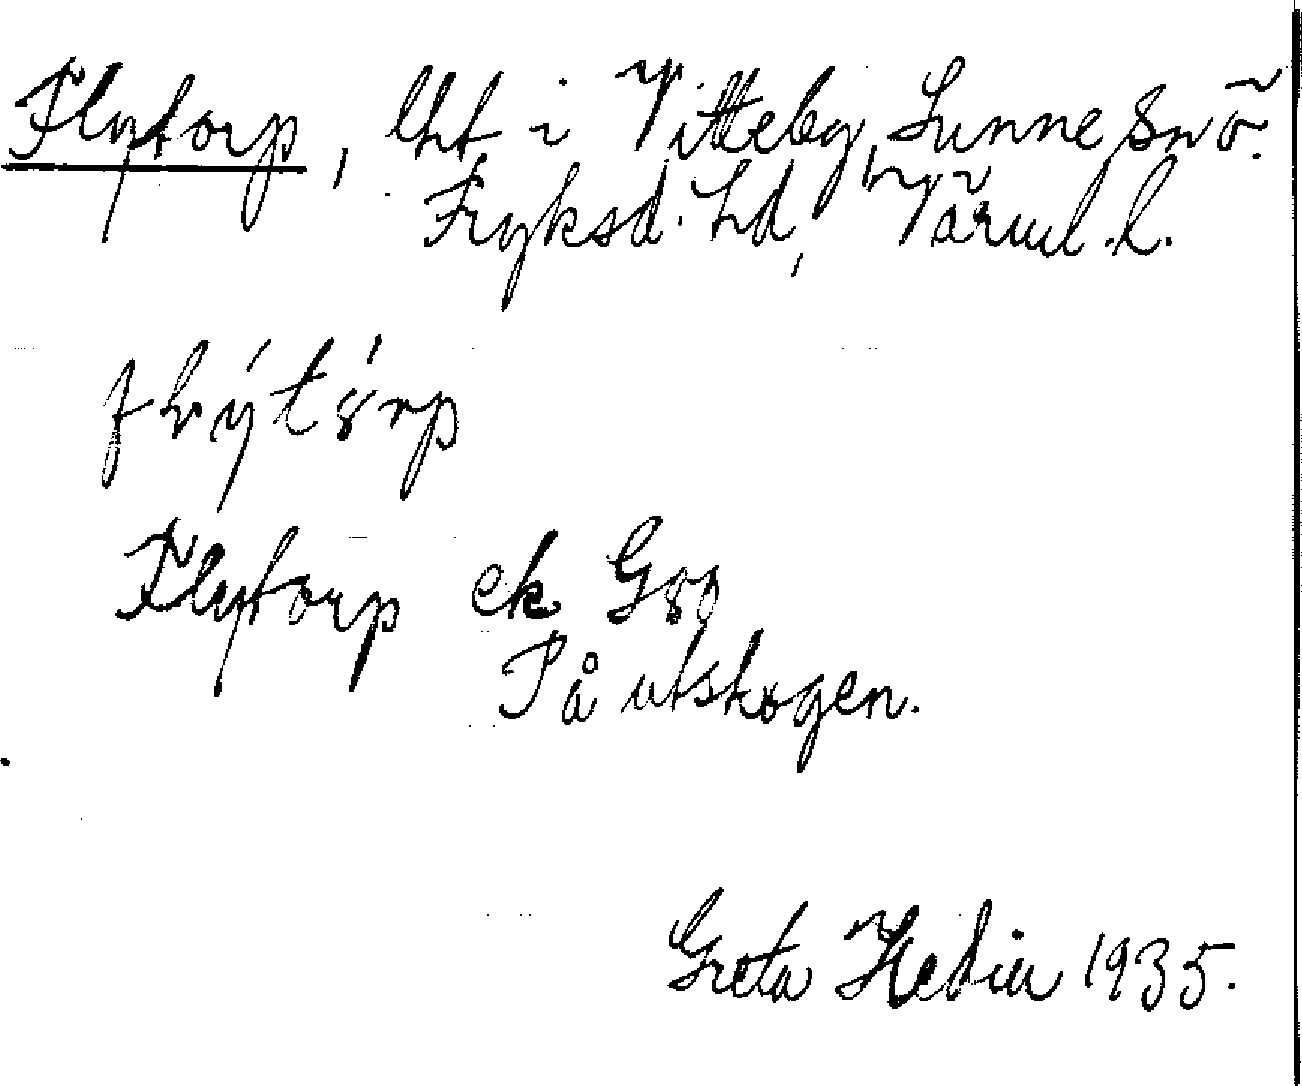 Flytorp, lht i Vitteby, Sunne snö.
Fryksd. hd, Värml. l.
Flytorp ek Gso
På utskogen.
Greta Hedin 1935.